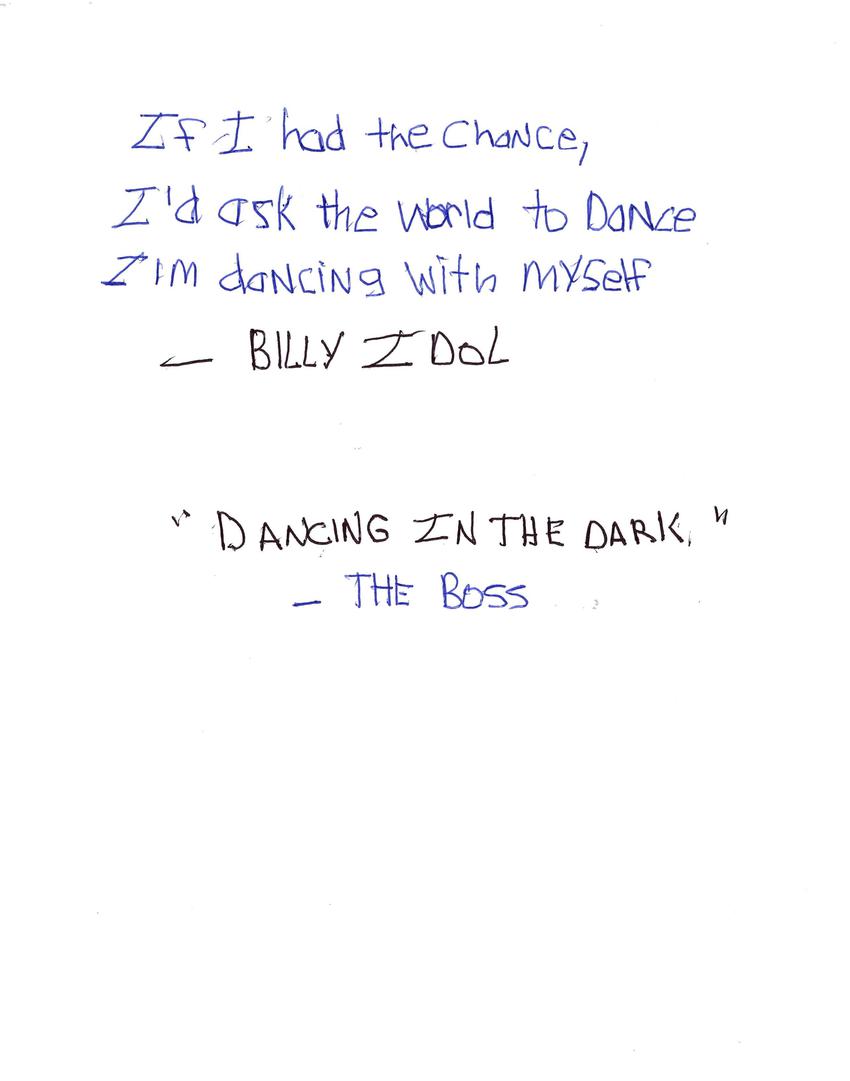 If I had the chance,
I'd ask the world to Dance
I'm dancing with myself
— BILLY IDOL
"DANCING IN THE DARK."
— THE BOSS